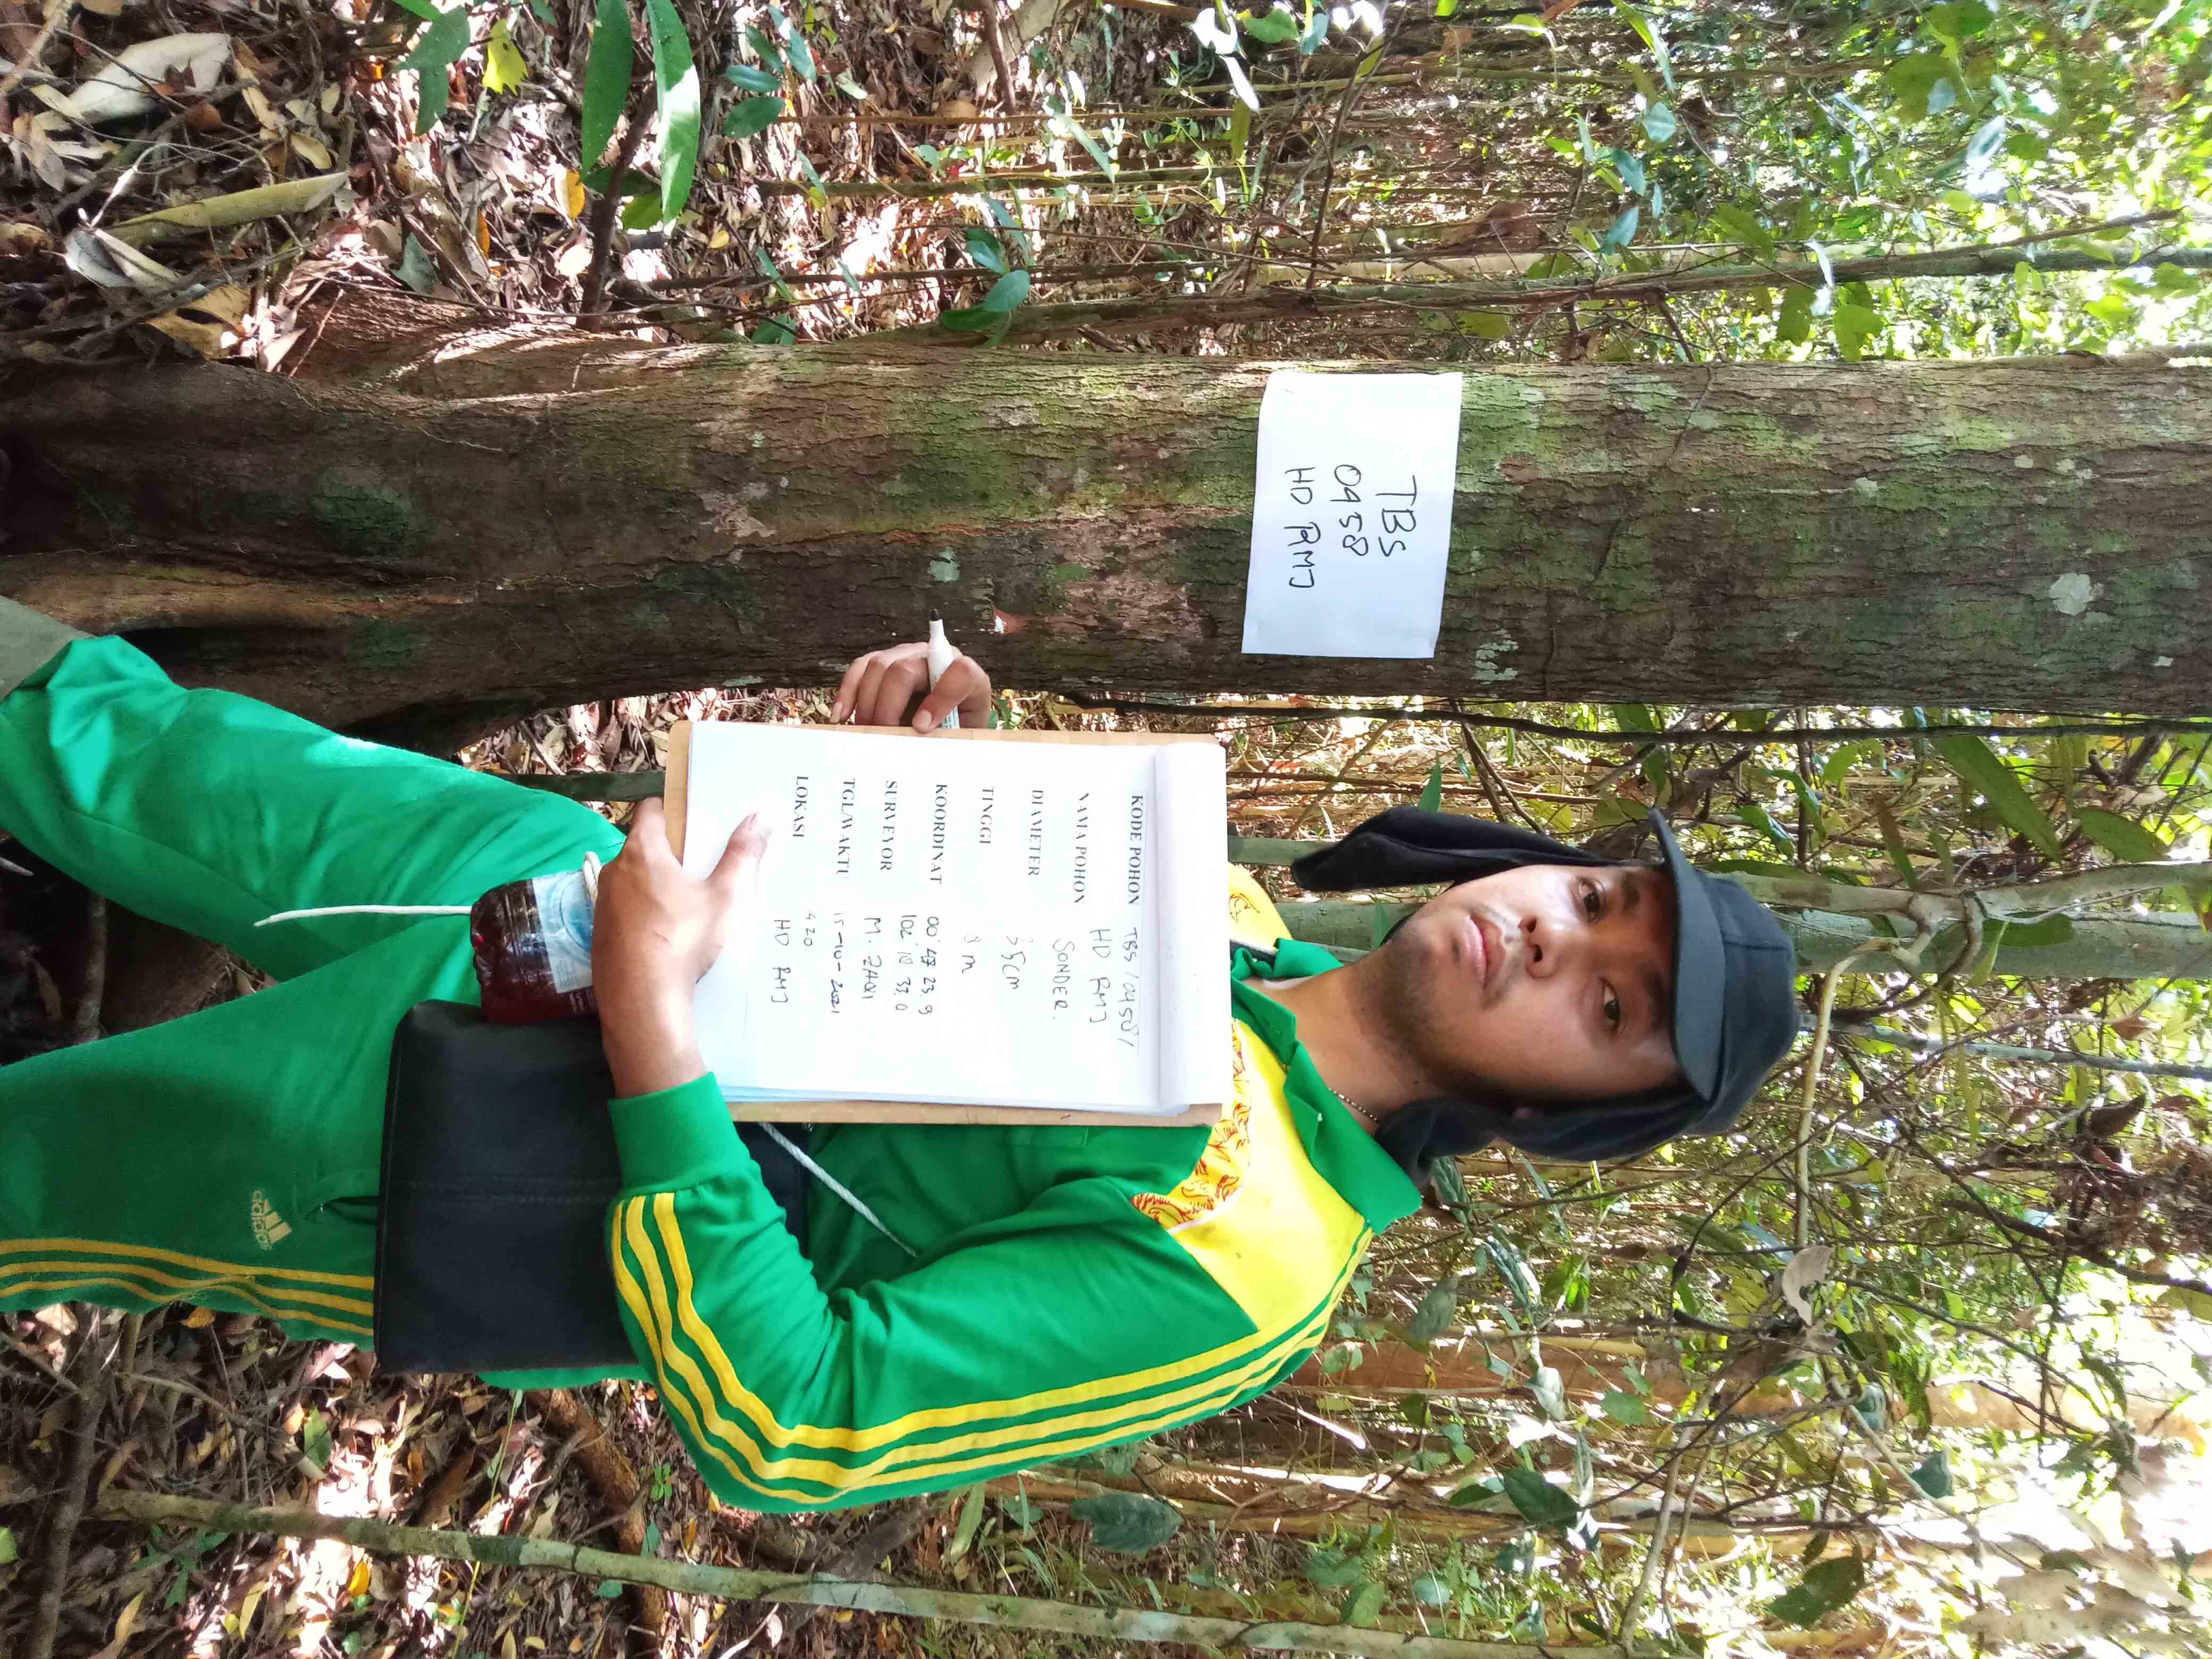 TBS
0458
HD RMJ
KODE POHON TBS/0458/
HD RMJ
NAMA POHON SONDER.
DIAMETER 35cm
TINGGI 8 m
KOORDINAT 00° 23.9
102° 33.0
SURVEYOR M. ZAQI
TGL/WAKTU 15-10-2021
420
LOKASI HD RMJ
adidas